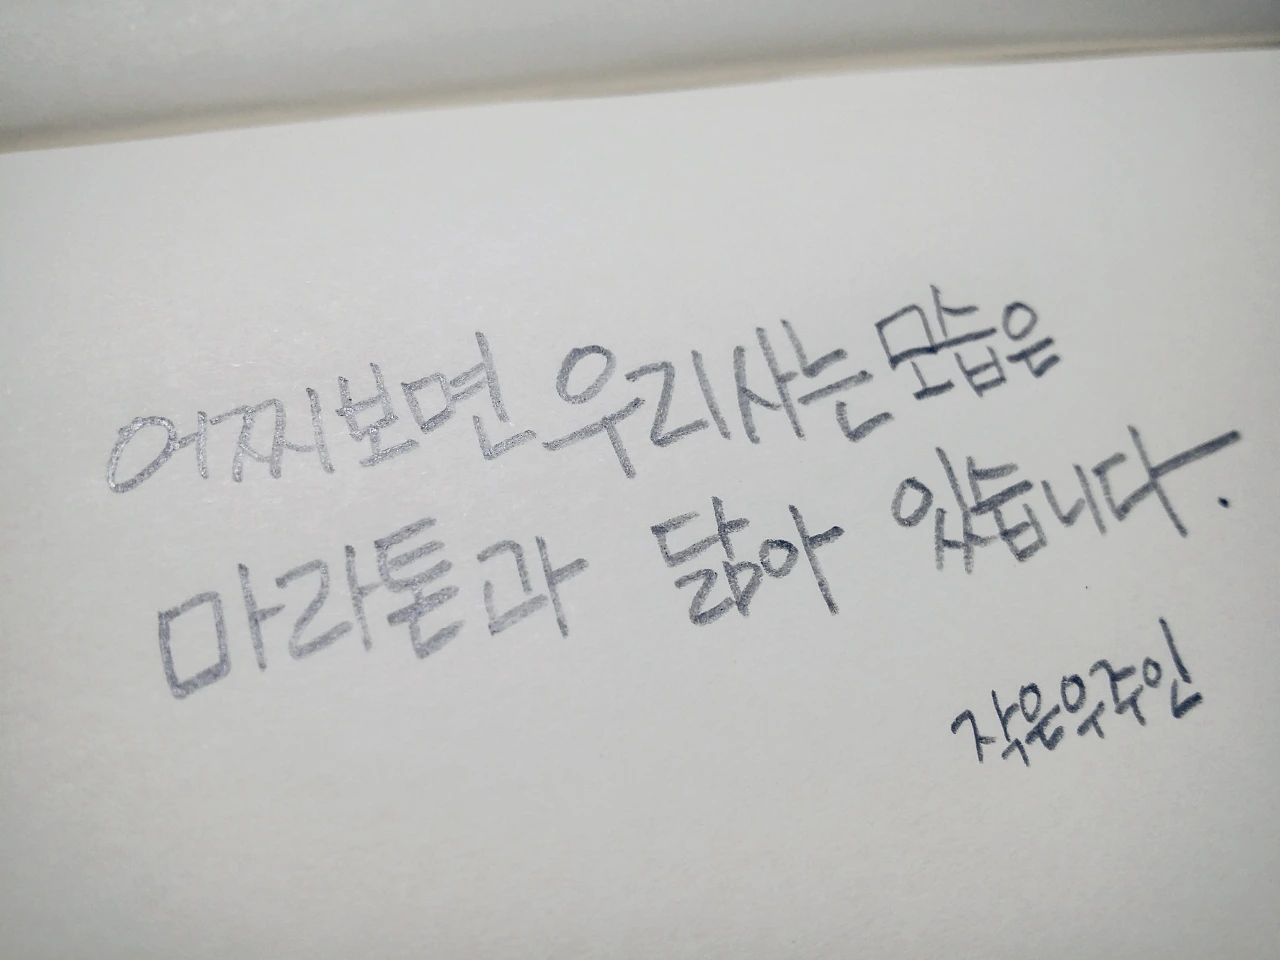 어찌보면 우리 사는 모습은
마라톤과 닮아 있습니다.
작은우주인